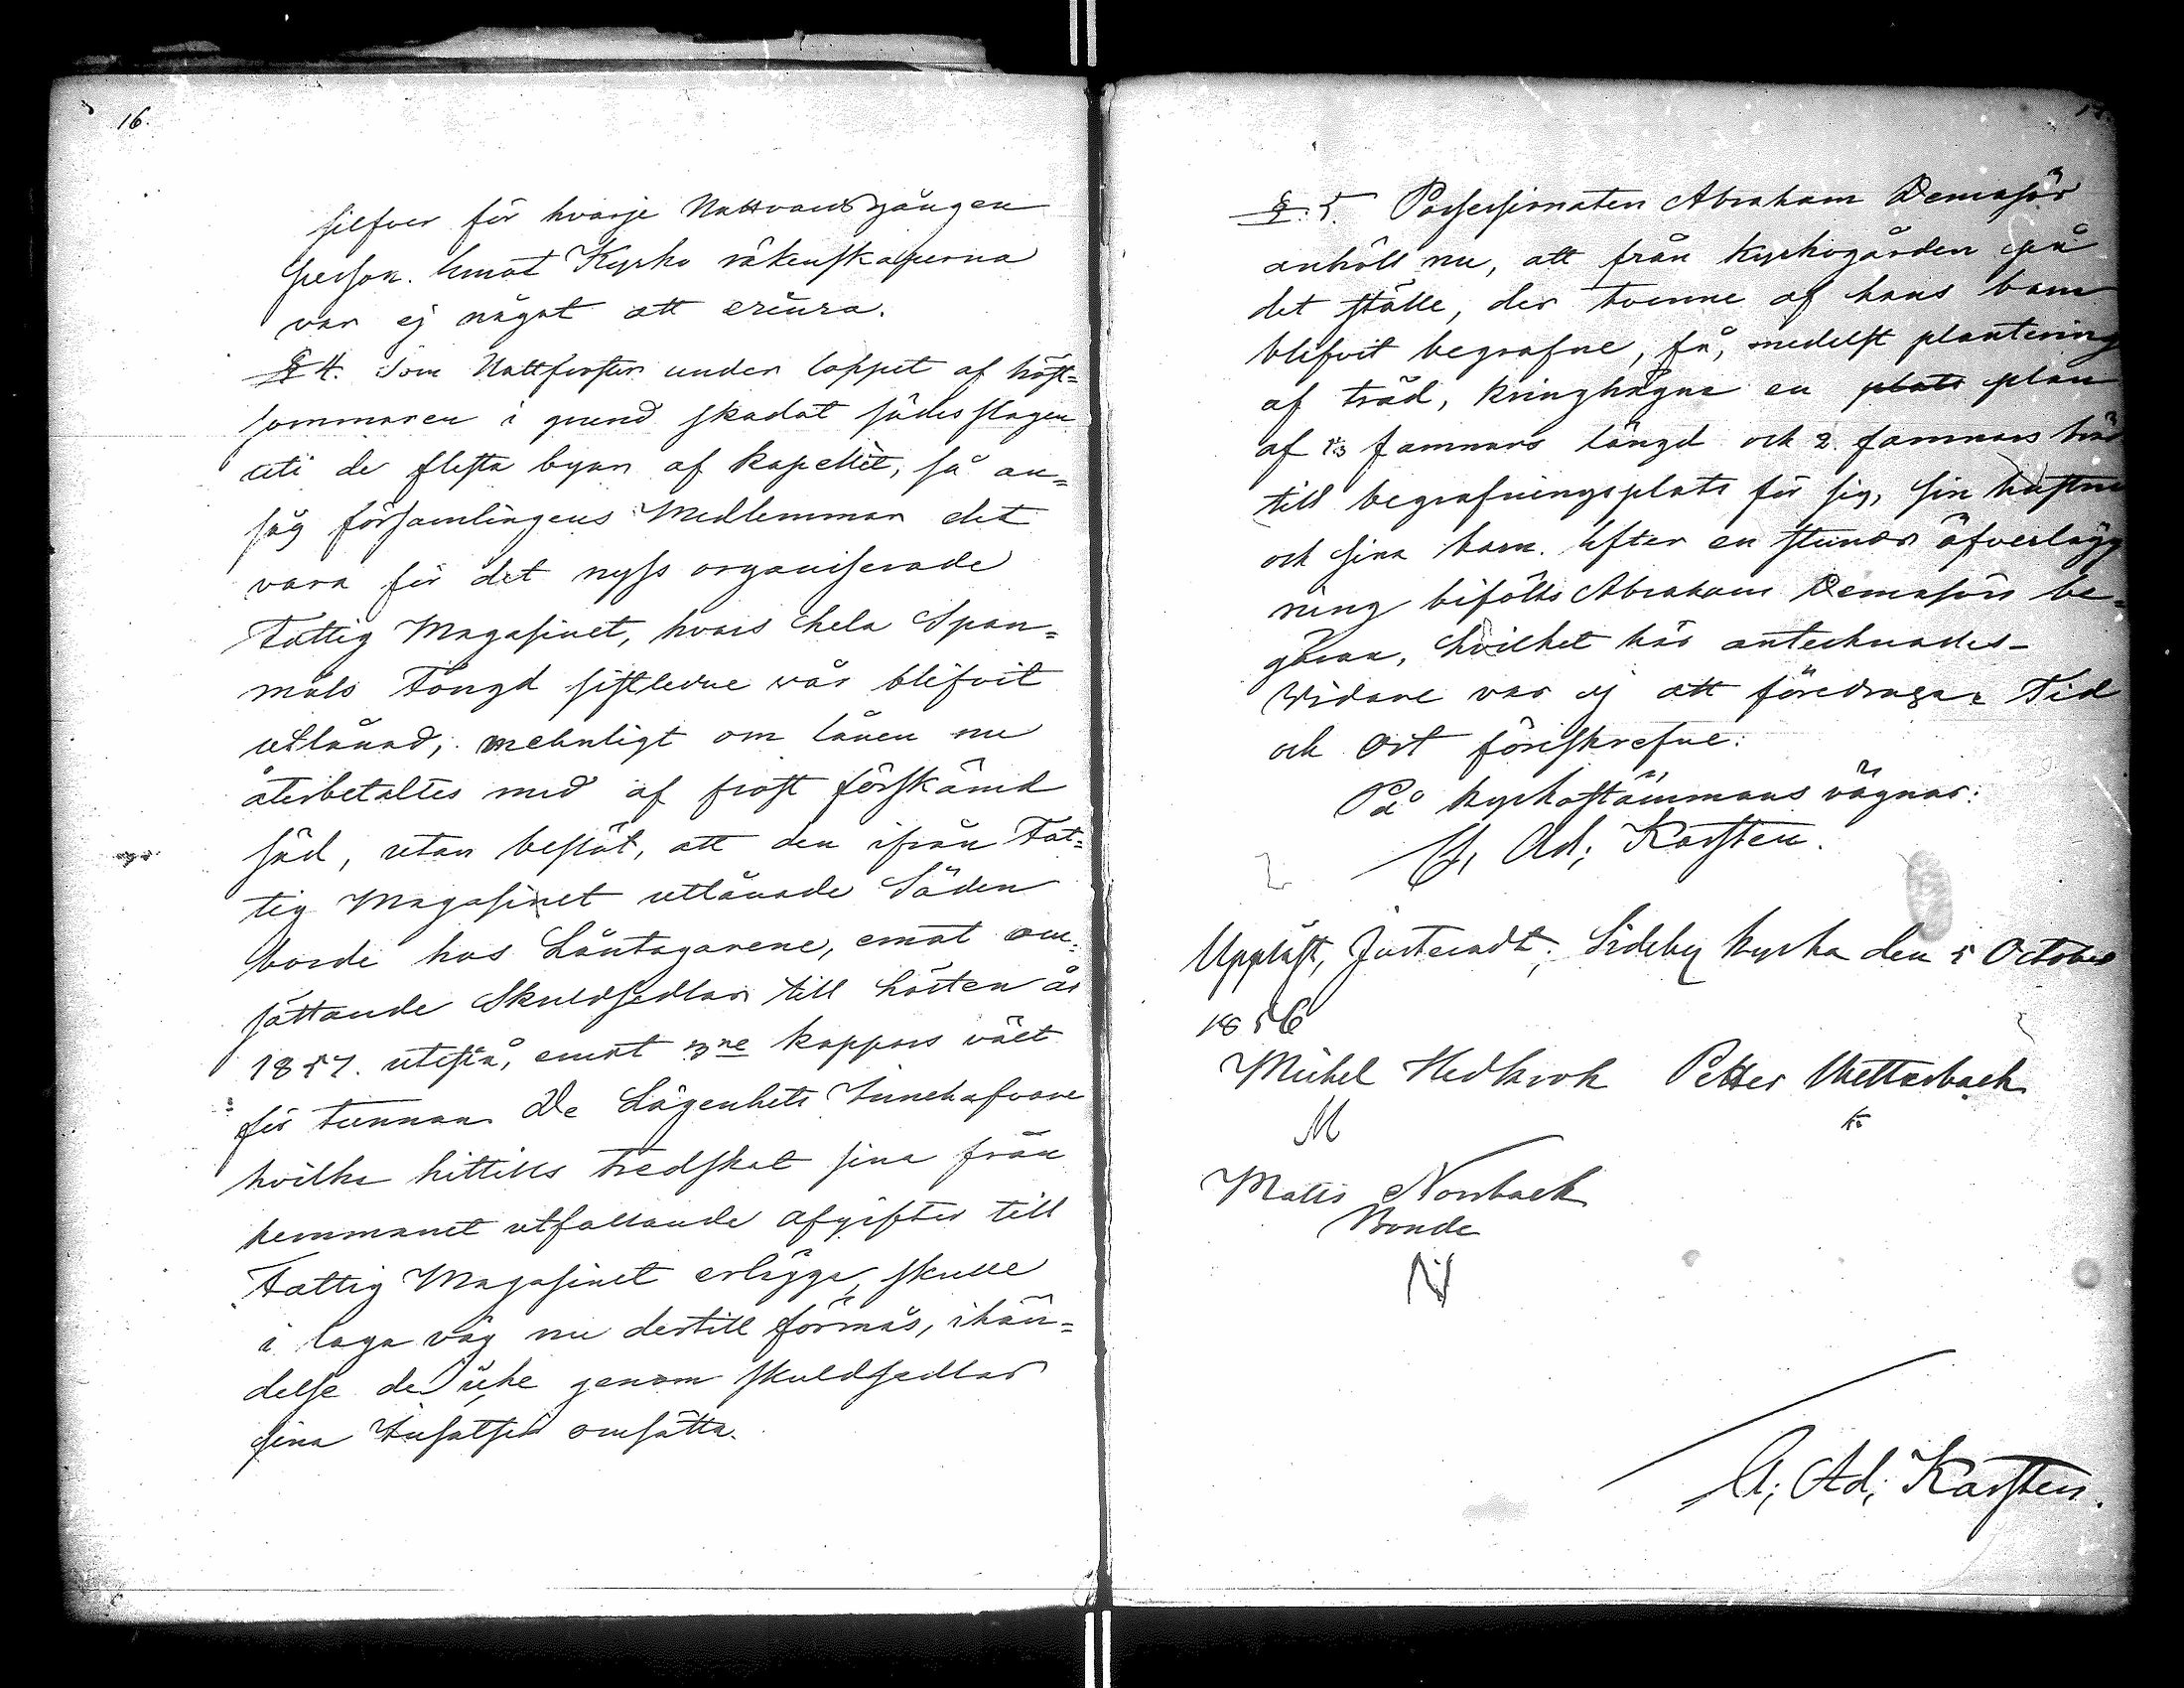 16.
silfver för hvarje Nattvardsgången
person. Emot Kyrko räkenskaperna
var ej något att erinra.
§ 4. Som Nattfroster under loppet af höst-
sommaren i grund skadat sädesslagen
uti de flesta byar af kapellet, så an-
såg församlingens Medlemmar det
vara för det nyss organiserade
Fattig Magasinet, hvars hela Span-
måls Fongd sistledne vår blifvit
utlånad, mehnligt om lånen nu
återbetaltes med af frost förskämd
säd, utan beslöt, att den ifrån Fat-
tig Magasinet utlånade Säden
borde hos Låntagarene, emot om-
sättande Skuldsedlar till hösten år
1857. utestå, emot 3ne kappars växt
för tunnan. De Lägenhets Innehafvare
hvilka hittills tredskat sina från
hemmanet utfallande afgifter till
Fattig Magasinet erlägga, skulle
i laga väg nu dertill förmås, ihän-
delse de icke genom skuldsedlar
sina Insatser omsätta.
§. 5. Possessionaten Abraham Demasör
anhöll nu, att från kyrkogården på
det ställe, der tvenne af hans barn
blifvit begrafne, få, medelst plantering
af träd, kringhägna en plats plan
af 3 famnars längd och 2 famnars bräd
till begrafningsplats för sig, sin hustru
och sina barn. Efter en stunds öfverlägg
ning biföllts Abraham Demasörs be-
gäran, hvilket här antecknades-
Vidare var ej att föredraga. Tid
och Ort föreskrefne:
På kyrkostämmans vägnar:
A, Ad; Karsten.
Uppläst, Justeradt; Sideby kyrka den 5 October
1856
Michel Hedkrok Petter Wetterback
M
Matts Norrback
Bonde
N
A; Ad; Karsten.